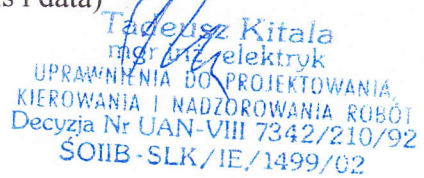 s i data)
Tadeusz Kitala
mgr inż. elektryk
UPRAWNIENIA DO PROJEKTOWANIA,
KIEROWANIA I NADZOROWANIA ROBÓT
Decyzja Nr UAN-VIII 7342/210/92
ŚOIIB-SLK/IE/1499/02